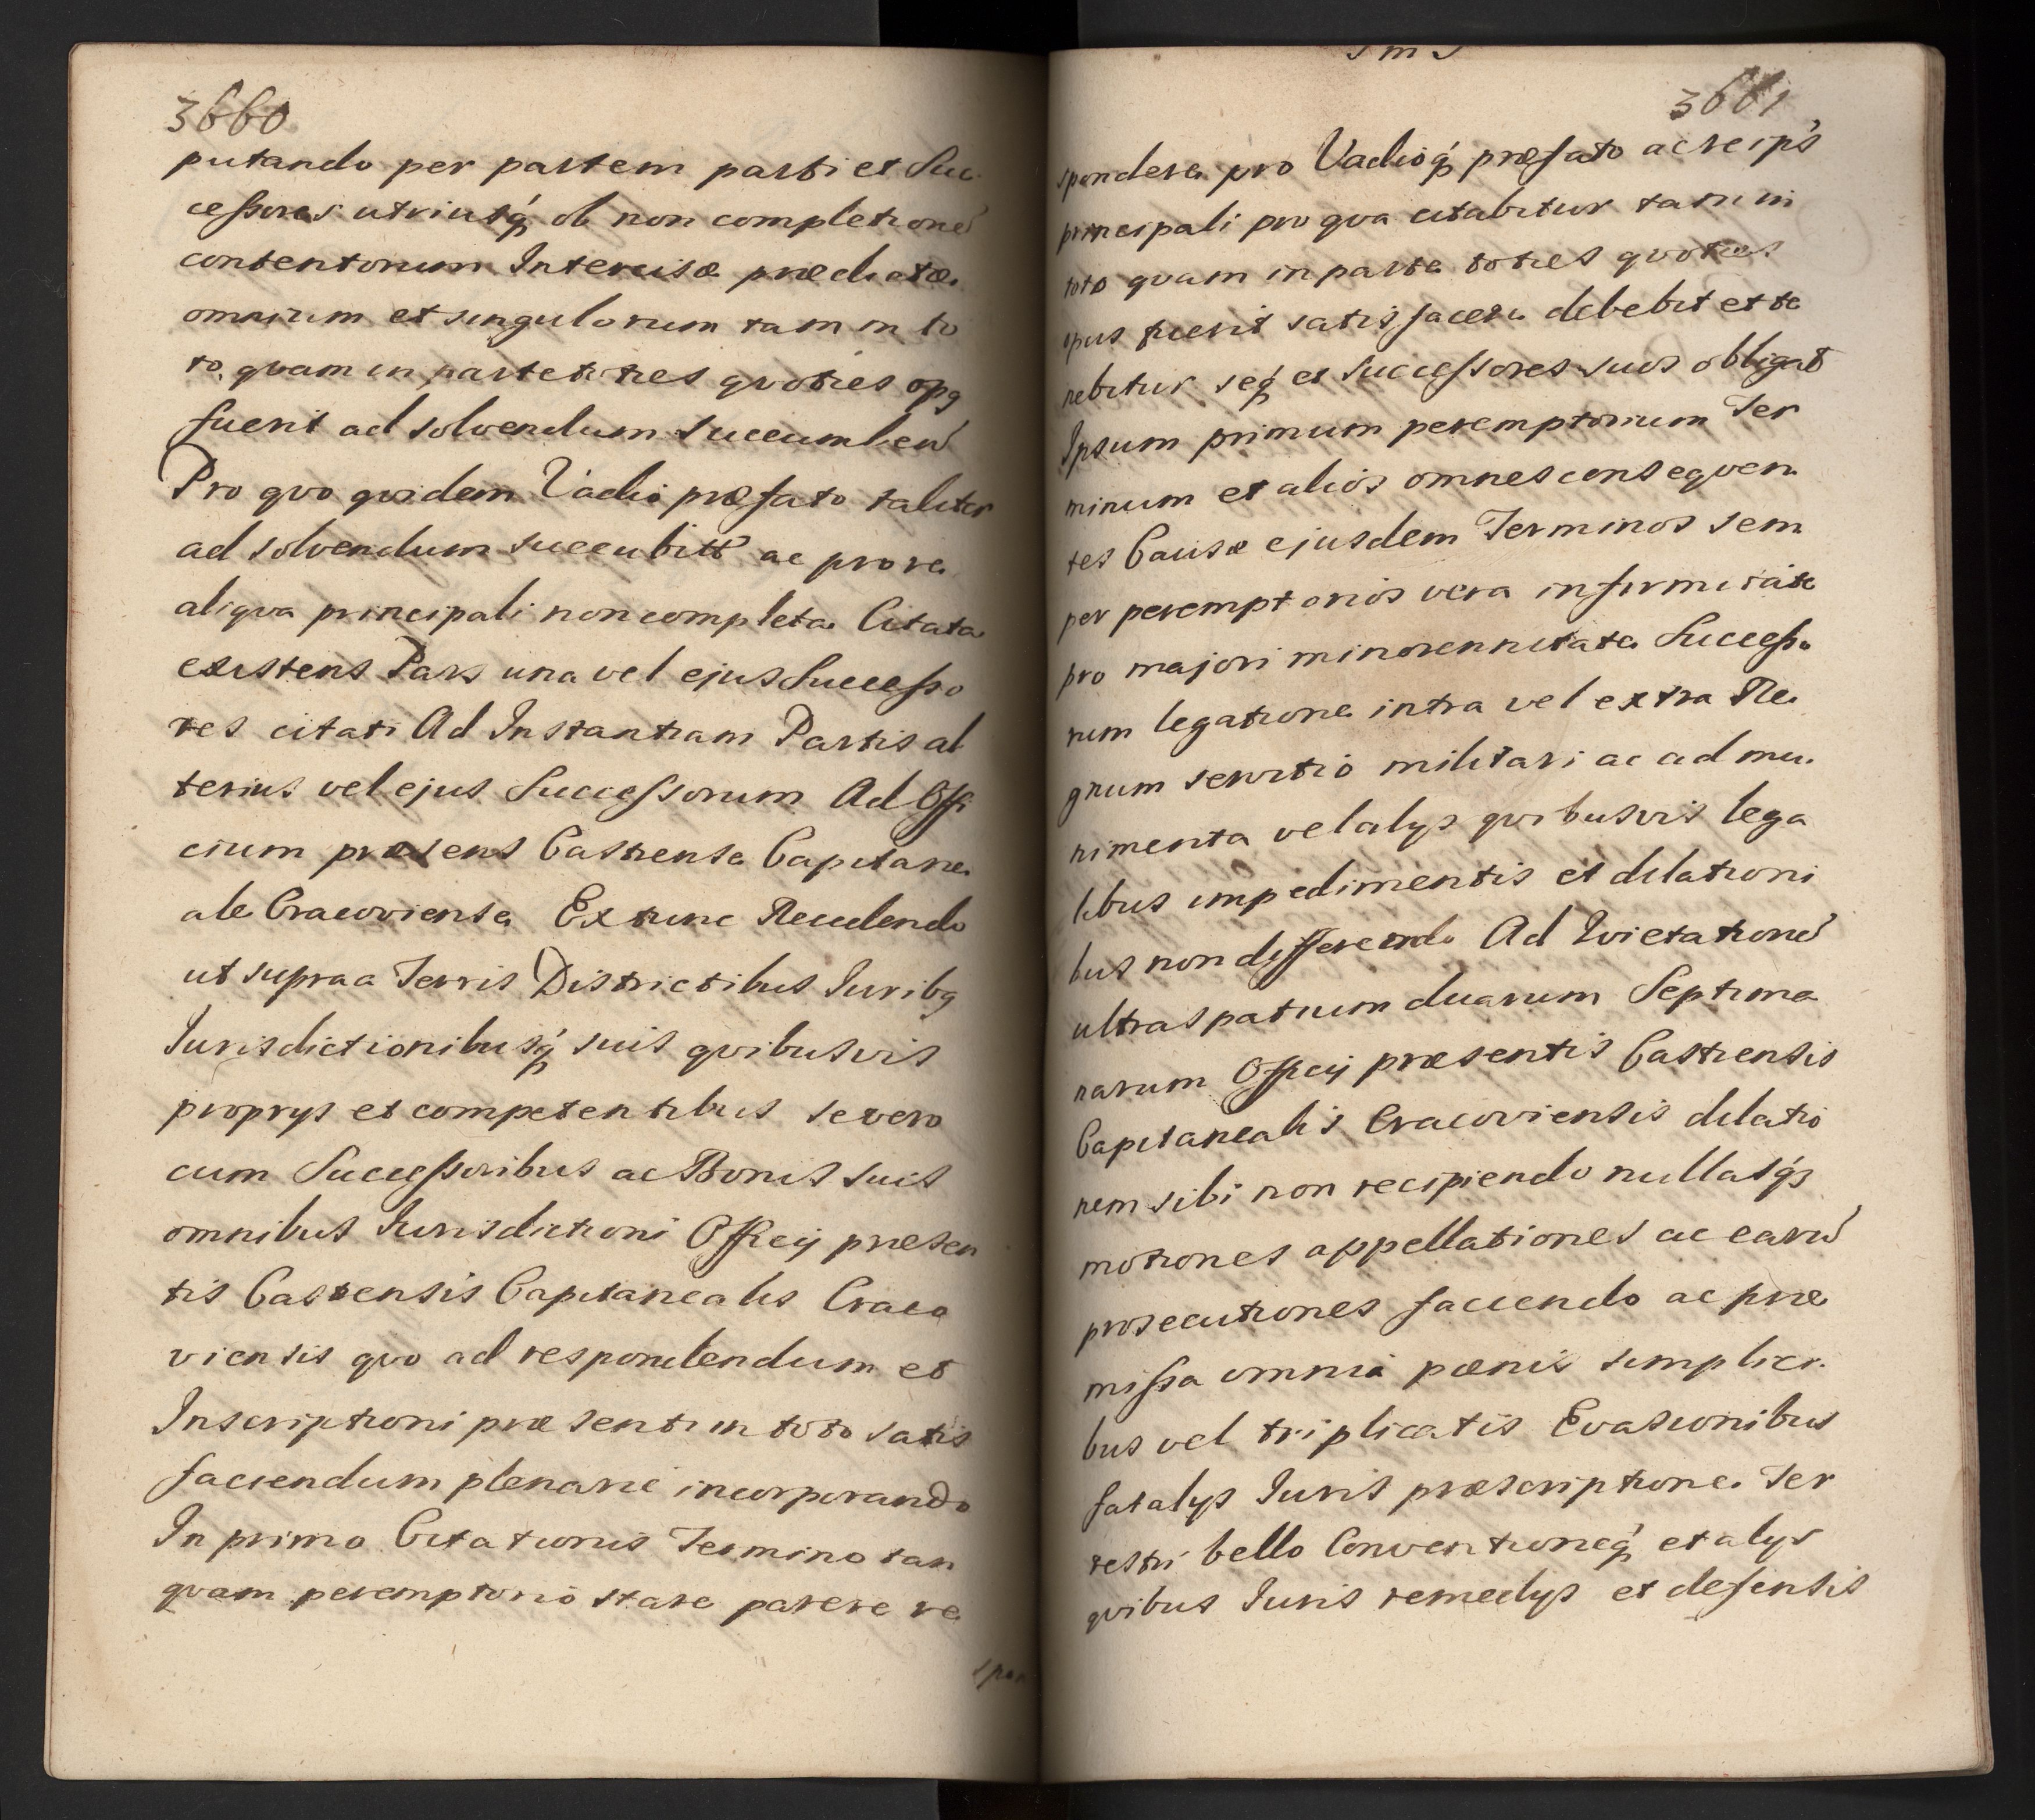 3660
putando per partem parti et Suc
cessores utriusq́ ob non completione
contentorum Intercisæ prædictæ
omnium et singulorum tam in to
to quam in parte toties quoties opq
fuerit ad solvendum succumben
Pro quo quidem Vadio præfato taliter
ad solvendum succubitt ac pro re
aliqva principali non completa Citata
existens Pars una vel ejus Successo
res citati Ad Instantiam Partis al
terius vel ejus Successorum Ad Offi
cium præsens Castrense Capitane
ale Cracoviense Extunc Recedendo
ut supra a Terris Districtibus Juribq
Jurisdictionibusq́ suis qvibusvis
proprys et competentibus se vero
cum Successoribus ac Bonis suis
omnibus Jurisdictioni Officij præsen
tis Castrensis Capitanealis Craco
viensis qvo ad respondendum et
Inscriptioni præsenti in toto satis
faciendum plenarie incorporando
In primo Citationis Termino tan
qvam peremptorio stare parere re
spon
3661
spondere pro Vadioq́ præfato ac re ips
principali pro qva citabitur tam in
toto qvam in parte toties qvoties
opus fuerit satisfacere debebit et te
nebitur seq́ et Successores suos obligat
Ipsum primum peremptorium Ter
minum et alios omnes conseqven
tes Causæ ejusdem Terminos sem
per peremptorios vera infirmitate
pro majori minorennitate Successo
rum legatione intra vel extra Re
gnum servitio militari ac ad mu
nimenta vel alys qvibusvis lega
libus impedimentis et dilationi
bus non differendo Ad Evictatione
ultra spatium duarum Septima
narum Officij præsentis Castrensis
Capitanealis Cracoviensis dilatio
nem sibi non recipiendo nullasq́s
motiones appellationes ac earu
prosecutiones faciendo ac præ
missa omnia pænis simplici
bus vel triplicatis Evasionibus
fatalys Juris præscriptione Ter
restri bello Conventioneq́ et alys
qvibus Juris remedys et defensis